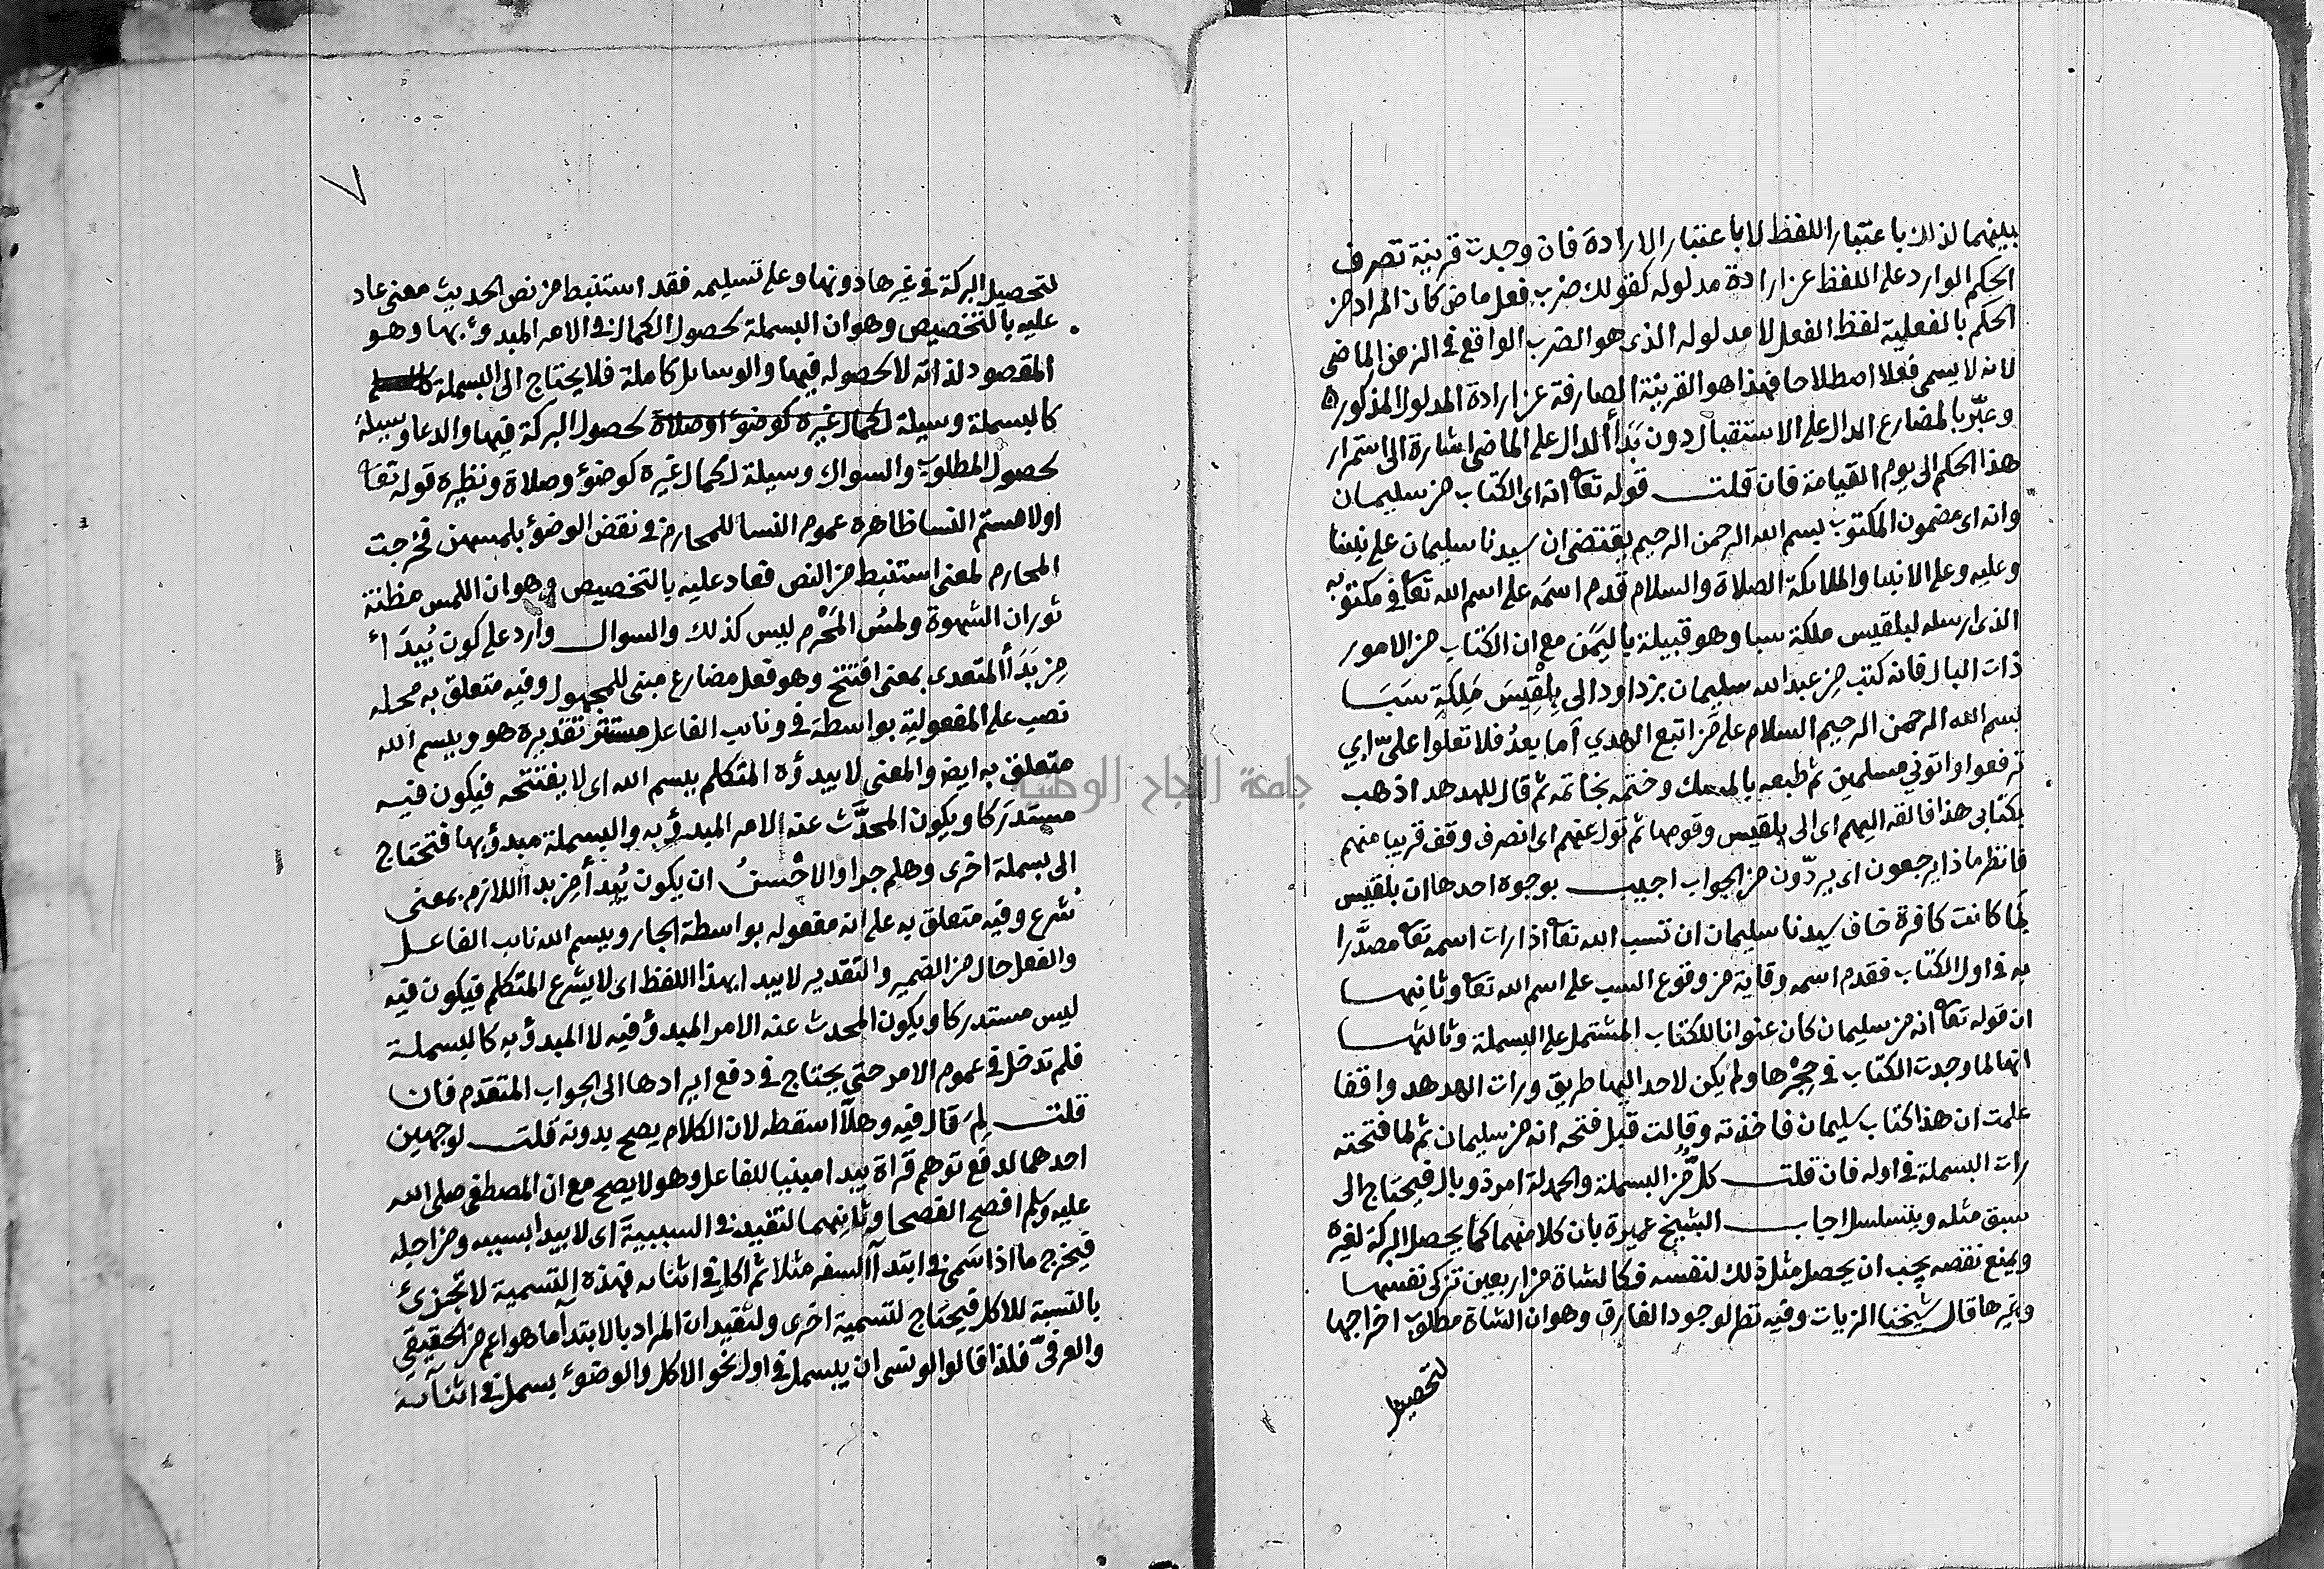 بينهما لذلك باعتبار اللفظ لا باعتبار الارادة فان وجدت قرينة تصرف
الحكم الوارد على اللفظ عن ارادة مدلوله كقولك ضرب فعل ماض كان المراد من
الحكم بالفعلية لفظ الفعل لا مدلوله الذى هو الضرب الواقع فى الزمن الماضى
لانه لا يسمى فعلا اصطلاحا فهذا هو القرينة الصارفة عن ارادة المدلول المذكور
وعبّر بالمضارع الدال على الاستقبال دون بَدَأ الدال على الماضى اشارة الى استمرار
هذا الحكم الى يوم القيامة فان قلت قوله تعا انه اى الكتاب من سليمان
وانه اى مضمون المكتوب بسم الله الرحمن الرحيم يقتضى ان سيدنا سليمان على نبينا
وعليه وعلى الانبيا والملايكة الصلاة والسلام قدم اسمَه على اسم الله تعا فى مكتوبه
الذى ارسله لبلقيس ملكة سبا وهو قبيلة باليَمَن مع ان الكتاب من الامور
ذات البال فانه كتب مِن عبد الله سليمان بن داود الى بِلْقِيسَ مَلِكَةِ سَبَا
بسم الله الرحمن الرحيم السلام على مَن اتبع الهدي أما بعدُ فلا تعلوا علىّ اي
ترفعوا واتوني مسلمين ثم طبعه بالمسك وختمه بخاتمه ثم قال للهدهد اذهب
بكتابى هذا فالقه اليهم اى الى بلقيس وقومها ثم تول عنهم اى انصرف وقف قريبا منهم
فانظر ماذا يرجعون اى يردّون من الجواب اجيب بوجوه احدها ان بلقيس
لما كانت كافرة خاف سيدنا سليمان ان تسب الله تعا اذا رات اسمه تعا مصدَّرا
به فى اول الكتاب فقدم اسمه وقاية من وقوع السب على اسم الله تعا وثانيها
ان قوله تعا انه من سليمان كان عنوانا للكتاب المشتمل على البسملة وثالثها
انها لما وجدت الكتاب فى حِجْرها ولم يكن لاحد اليها طريق ورات الهدهد واقفا
علمت ان هذا كتاب سليمان فاخذته وقالت قبل فتحه انه من سليمان ثم لما فتحته
رات البسملة فى اوله فان قلت كلٌّ من البسملة والحمدلة امر ذو بال فيحتاج الى
سبق مثله ويتسلسل اجاب الشيخ عميرة بان كلا منهما كما يحصل البركة لغيره
ويمنع نقصه يجب ان يحصل مثل ذلك لنفسه فكالشاة من اربعين تزكى نفسها
وغيرها قال شيخنا الزيات وفيه نظر لوجود الفارق وهو ان الشاة مطلوب اخراجها
لتحصيل
٧
لتحصيل البركة فى غيرها دونها وعلى تسليمه فقد استنبط من نص الحديث معنى عاد
عليه بالتخصيص وهو ان البسملة لحصول الكمال فى الامر المبدوء بها وهو
المقصود لذاته لا لحصوله فيها والوسايل كاملة فلا يحتاج الى البسملة
كالبسملة وسيلة لكمال غيره كوضوء او صلاة لحصول البركة فيها والدعا وسيلة
لحصول المطلوب والسواك وسيلة لكمال غيره كوضوء وصلاة ونظيره قوله تعا
او لامستم النسا ظاهره عموم النسا للمحارم فى نقض الوضوء بلمسهن فخرجت
المحارم لمعنى استنبط من النص فعاد عليه بالتخصيص وهو ان اللمس مظنة
ثوران الشهوة ولمسُ المَحْرم ليس كذلك والسوال وارد على كون يُبدَأ
مِن بَدَأ المتعدى بمعنى افتتح وهو فعل مضارع مبنى للمجهول وفيه متعلق به محله
نصب على المفعولية بواسطة فى ونايب الفاعل مستتر تقديره هو وببسم الله
متعلق به ايضا والمعنى لا يبدؤه المتكلم ببسم الله اى لا يفتتحه فيكون فيه
مستدرَكا ويكون المحدَّث عنه الامر المبدؤ به والبسملة مبدؤ بها فتحتاج
الى بسملة اخرى وهلم جرا والاحْسنُ ان يكون يُبدأ من بدا اللازم بمعنى
شرع وفيه متعلق به على انه مفعوله بواسطة الجار وببسم الله نايب الفاعل
والفعل خال من الضمير والتقدير لا يبدا بهذا اللفظ اى لا يشرع المتكلم فيكون فيه
ليس مستدركا ويكون المحدث عنه الامر المبدؤ فيه لا المبدؤ به كالبسملة
فلم تدخل فى عموم الامر حتى يحتاج فى دفع ايرادها الى الجواب المتقدم فان
قلت لِمَ قال فيه وهلّا اسقطه لان الكلام يصح بدونه قلت لوجهين
احدهما لدفع توهم قراة يبدا مبنيا للفاعل وهو لا يصح مع ان المصطفى صلى الله
عليه وسلم افصح الفصحا وثانيهما لتفيد فى السببية اى لا يبدا بسببه ومن اجله
فيخرج ما اذا سَمى فى ابتدآ السفر مثلا ثم اكل فى اثنايه فهذه التسمية لا تجزئ
بالنسبة للاكل فيحتاج لتسمية اخرى ولتفيد ان المراد بالابتدآ ما هو اعم من الحقيقي
والعرفىّ فلذا قالوا لو نسى ان يبسمل فى اول نحو الاكل والوضوء يسمل فى اثنآيه
جامعة النجاح الوطنية